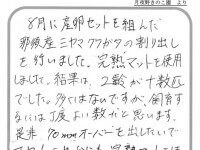 月夜野きのこ園 より
8月に産卵セットを組んだ
那須産ミヤマクワガタの割り出し
を行いました。完熟マットを使用
しまして、結果は、2齢が十数匹
でした。多くはないのですが、飼育す
るには丁度よい数かと思います。
是非 70mmオーバーを出したいで